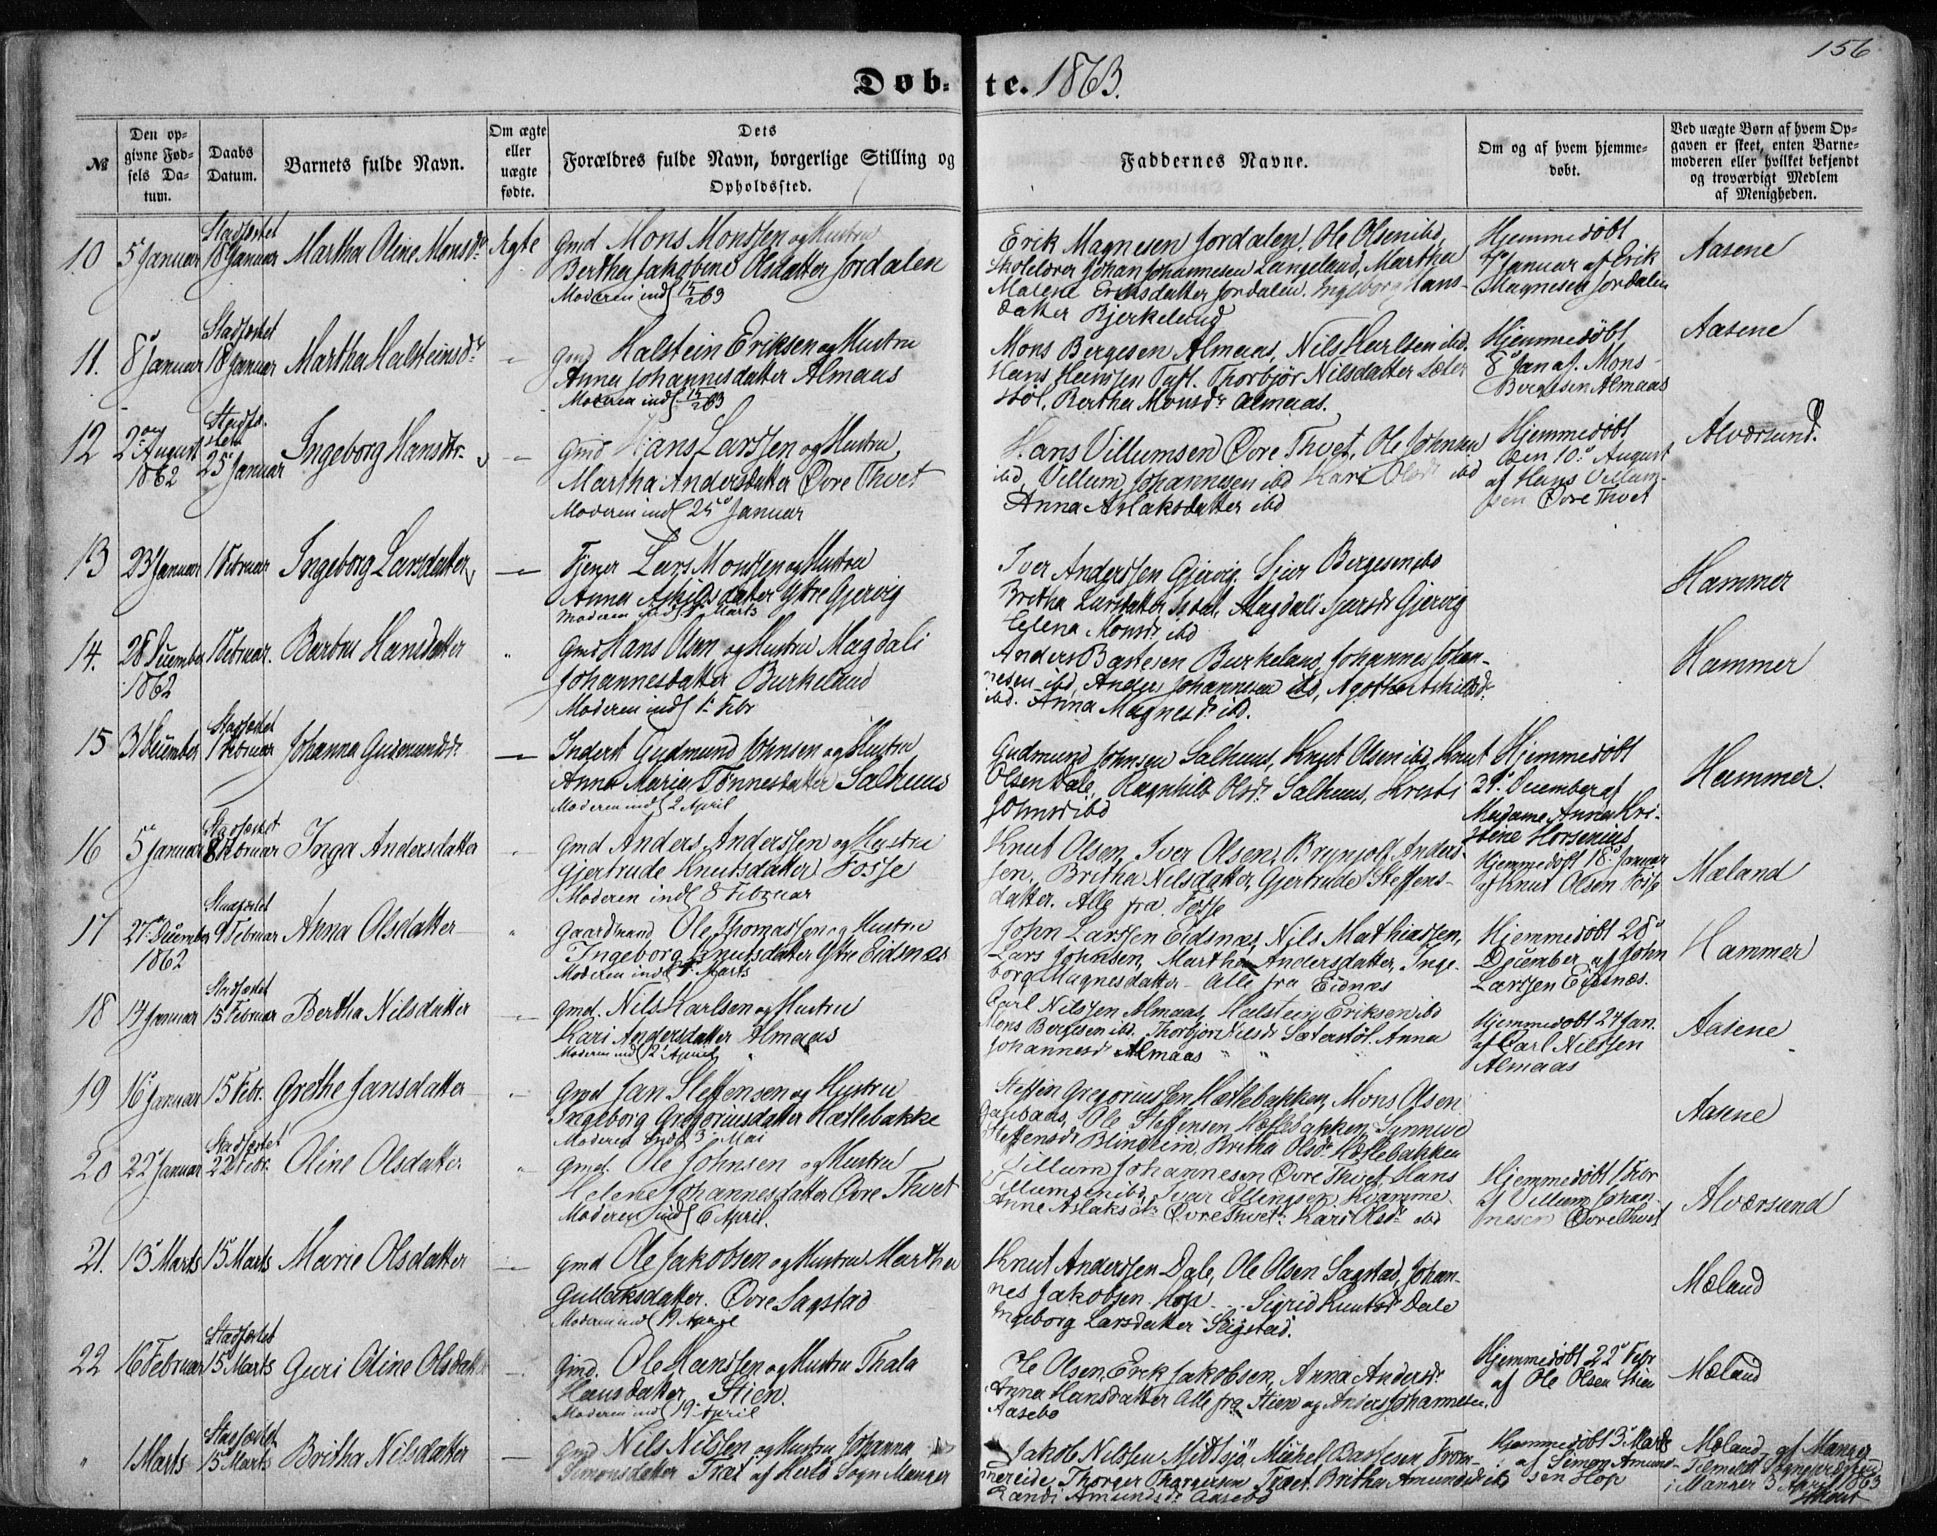 156
Døb-te. 1863.
№
Den op-
givne Fød-
sels Da-
tum.
Daabs
Datum.
Barnets fulde Navn.
Om ægte
eller
uægte
fødte.
Dets
Forældres fulde Navn, borgerlige Stilling og
Opholdssted.
Faddernes Navne.
Om og af hvem hjemme-
døbt.
Ved uægte Børn af hvem Op-
gaven er skeet, enten Barne-
moderen eller hvilket bekjendt
og troværdigt Medlem
af Menigheden.
10 5 Januar Stadfæstet 18 Januar Martha Oline Monsdr Ægte
Gmd Mons Monssen og Hustru
Bertha Jakobine Olsdatter Jordalen
Moderen indl 15/2 63
Erik Magnesen Jordalen, Ole Olsen ibd,
Skolelærer Johan Johannesen Langeland, Martha
Malene Eriksdatter Jordalen. Ingeborg Hans-
datter Bjerkelund
Hjemmedøbt
Januar af Erik
Magnesen Jordalen
Aasene
11. 8 Januar Stadfæstet 18 Januar Martha Halsteinsdr
Gmd Halstein Eriksen og Hustru
Anna Johannesdatter Almaas
Moderen indl 15/2 63
Mons Bergesen Almaas, Nils Karlsen ibd.
Hans Hanssen Tuft. Thorbjør Nilsdatter Sæter
støl, Bertha Monsdr Almaas.
Hjemmedøbt
8 Jan af. Mons
Bergesen Almaas
Aasene
12 2 August 1862 Stadfæstet 25 Januar Ingeborg Hansdtr
Gmd Hans Larssen og Hustru
Martha Andersdatter Øvre Thvet
Moderen indl 25 Januar
Hans Villumsen Øvre Thvet, Ole Johnsen
ibd, Villum Johannesen ibd Kari Olsdr ibd
Anna Aslaksdatter ibd
Hjemmedøbt
den 10 August
af Hans Villum-
sen Øvre Thvet
Alværsund.
13 23 Januar 1 Februar Ingeborg Larsdatter
Tjener Lars Monssen og Hustru
Anna Askildsdatter Ytre Gjervig
Moderen indl Marts
Iver Anderssen Gjervig. Sjur Bergesen ibd
Britha Larsdatter, Magdali Sjursdr Gjervig
Helena Monsdr ibd
Hammer
14. 28 December 1862 1 Februar. Barbru Hansdatter
Gmd Hans Olsen og Hustru Magdali
Johannesdatter Burkeland
Moderen indl 1 Febr
Anders Bastesen Burkeland, Johannes Johan-
nesen ibd, Anders Johannesen ibd,
ibd. Anna Magnesdr ibd.
Hammer
15 31 December Stadfæstet 1 Februar Johanna Gudmundsdr
Inderst Gudmund Johnsen og Hustru
Anna Maria Tønnesdatter Salhuus
Moderen indl 2 April
Gudmund Johnsen Salhuus, Knut Olsen ibd, Knut
Olsen Dale, Ragnhild Olsdr Salhuus, Kristi
Johnsdr ibd
Hjemmedøbt
31 December af
Madame Anna Kri-
stene Horsenius
Hammer.
16 5 Januar Stadfæstet 8 Februar Inga Andersdatter
Gmd Anders Anderssen og Hustru
Gjertrude Knutsdatter Fosse
Moderen indl 8 Februar
Knut Olsen, Iver Olsen, Brynjolf Anders-
sen, Britha Nilsdatter, Gjertrude Steffens-
datter. Alle fra Fosse
Hjemmedøbt 18 Januar
af Knut Olsen Fosse
Mæland
17 27 December 1862 Stadfæstet 9 Februar Anna Olsdatter
Gaardmand Ole Thomassen og Hustru
Ingeborg Knutsdatter Ytre Eidsnæs
Moderen indl Marts
John Larssen Eidsnæs, Nils Mathiassen,
Lars Johnsen, Martha Andersdatter, Inge-
borg Magnesdatter - Alle fra Eidnæs
Hjemmedøbt 28
December af John
Larssen Eidsnæs.
Hammer
18 14 Januar Stadfæstet 15 Februar Bertha Nilsdatter
Gmd. Nils Karlsen og Hustru
Kari Andersdatter Almaas
Moderen indl 2 April
Carl Nilssen Almaas, Halstein Eriksen ibd
Mons Bergesen ibd. Thorbjør Nilsdr Sæterstøl. Anna
Johannesdr Almaas
Hjemmedøbt 24 Jan.
af Carl Nilssen
Almaas
Aasene
19 16 Januar 15 Febr. Grethe Jansdatter
Gmd Jan Steffensen og Hustru
Ingeborg Gregoriusdatter Hætlebakke
Moderen indl 3 Mai
Steffen Gregoriussen Hætlebakken, Mons Olsen
Ole Steffensen Hætlebakken, Synneve
Steffensdr Blindheim, Britha Olsdr Hætlebakken
Aasene
20 22 Januar Stadfæstet 22 Febr. Oline Olsdatter
Gmd. Ole Johnsen og Hustru
Helene Johannesdatter Øvre Thvet
Moderen indl 6 April.
Villum Johannesen Øvre Thvet, Hans
Villumsen ibd, Ivar Ellingsen Kvamme
Anne Aslaksdr Øvre Thvet. Kari Olsdr ibd
Hjemmedøbt 1 Febr
af Villum Johan-
nesen Øvre Thvet
Alværsund
21. 13 Marts 15 Marts Marie Olsdatter
Gmd Ole Jakobsen og Hustru Martha
Gullaksdatter. Øvre Sagstad
Moderen indl 19 April
Knut Anderssen Dale, Ole Olsen Sagstad, Johan-
nes Jakobsen Hop - Sigrid Knutsdr Dale
Ingeborg Larsdatter Sagstad.
Mæland
22 16 Februar Stadfæstet 15 Marts Guri Oline Olsdatt
Gmd. Ole Hanssen og Hustru Thala
Hansdatter Stien.
Moderen indl 19 April
Ole Olsen, Erik Jakobsen, Anna Andersdr
Anna Hansdatter Alle fra Stien og Anders Johannesen,
Aasebø
Hjemmedøbt 22 Febr
af Ole Olsen Stien
Mæland
" 1 Marts Stadfæstet 15 Marts Britha Nilsdatter
Gmd Nils Nilssen og Hustru Johanna
Simonsdatter Træt af Herlø Sogn Manger
Jakob Nilssen Midtsjø, Mikkel Bastesen From-
nereide, Thorger Thorgersen Træt. Britha Amundsdr ibd
Randi Amundsdr Aasebø
Hjemmedøbt 3 Marts
af Simon Amund-
sen Hop
Mæland - af Manger
Tilmeldt Sognepræsten
i Manger 3 April 1863